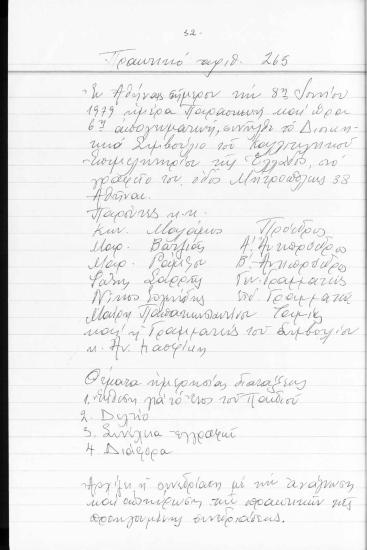 32.
Πρακτικό αριθ. 265
Εν Αθήναις σήμερον την 8ην Ιουνίου
1979 ημέρα Παρασκευή και ώρα
6η απογευματινή, συνήλθε το Διοικη-
τικό Συμβούλιο του Καλλιτεχνικού
Επιμελητηρίου της Ελλάδος, στο
γραφείο του, οδός Μητροπόλεως 38
Αθήναι.
Παρόντες κ.κ.
Κων. Πρόεδρος
Μαρ. Α' Αντιπρόεδρος
Μαρ. Β' Αντιπρόεδρος
Γεν. Γραμματεύς
Νίκος
Μαίρη Παπακωνσταντίνου Ταμίας
και η Γραμματεύς του Συμβουλίου
κ. Αν.
Θέματα ημερησίας διατάξεως
1. Έκθεση για το έτος του Παιδιού
2. Δελτίο
3. Συνέχεια εγγραφών
4. Διάφορα
Αρχίζει η συνεδρίαση με την ανάγνωση
και επικύρωση των πρακτικών της
προηγουμένης συνεδριάσεως.